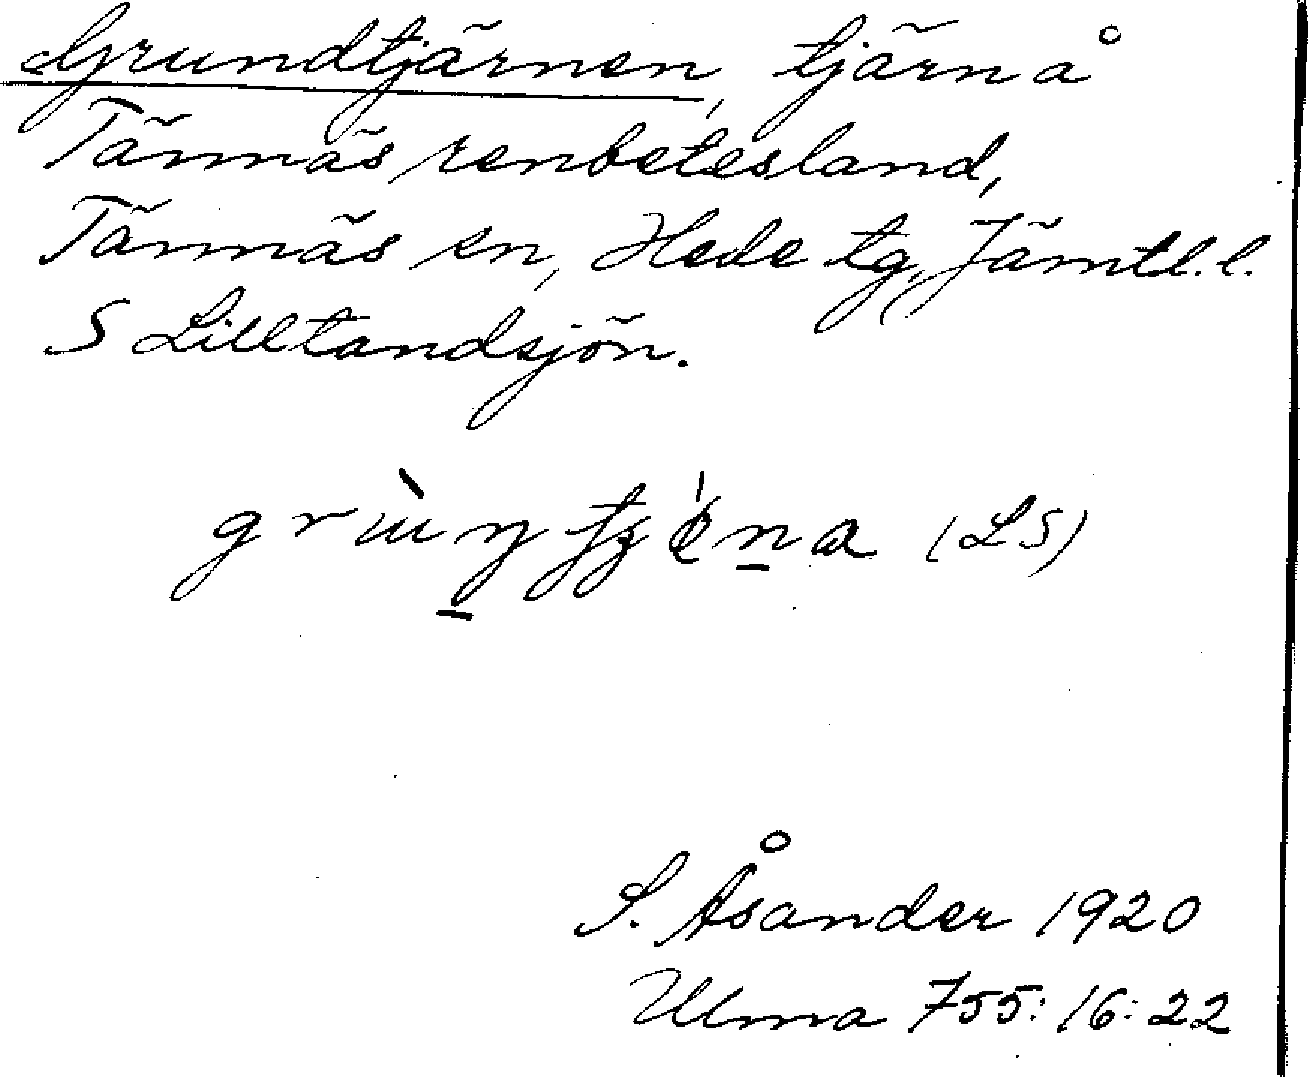 Grundtjärnen, tjärn å
Tännäs renbetesland,
Tännäs sn, Hede tg, Jämtl.l.
S Lilltandsjön.
(LS)
S. Åsander 1920
Ulma 755:16:22